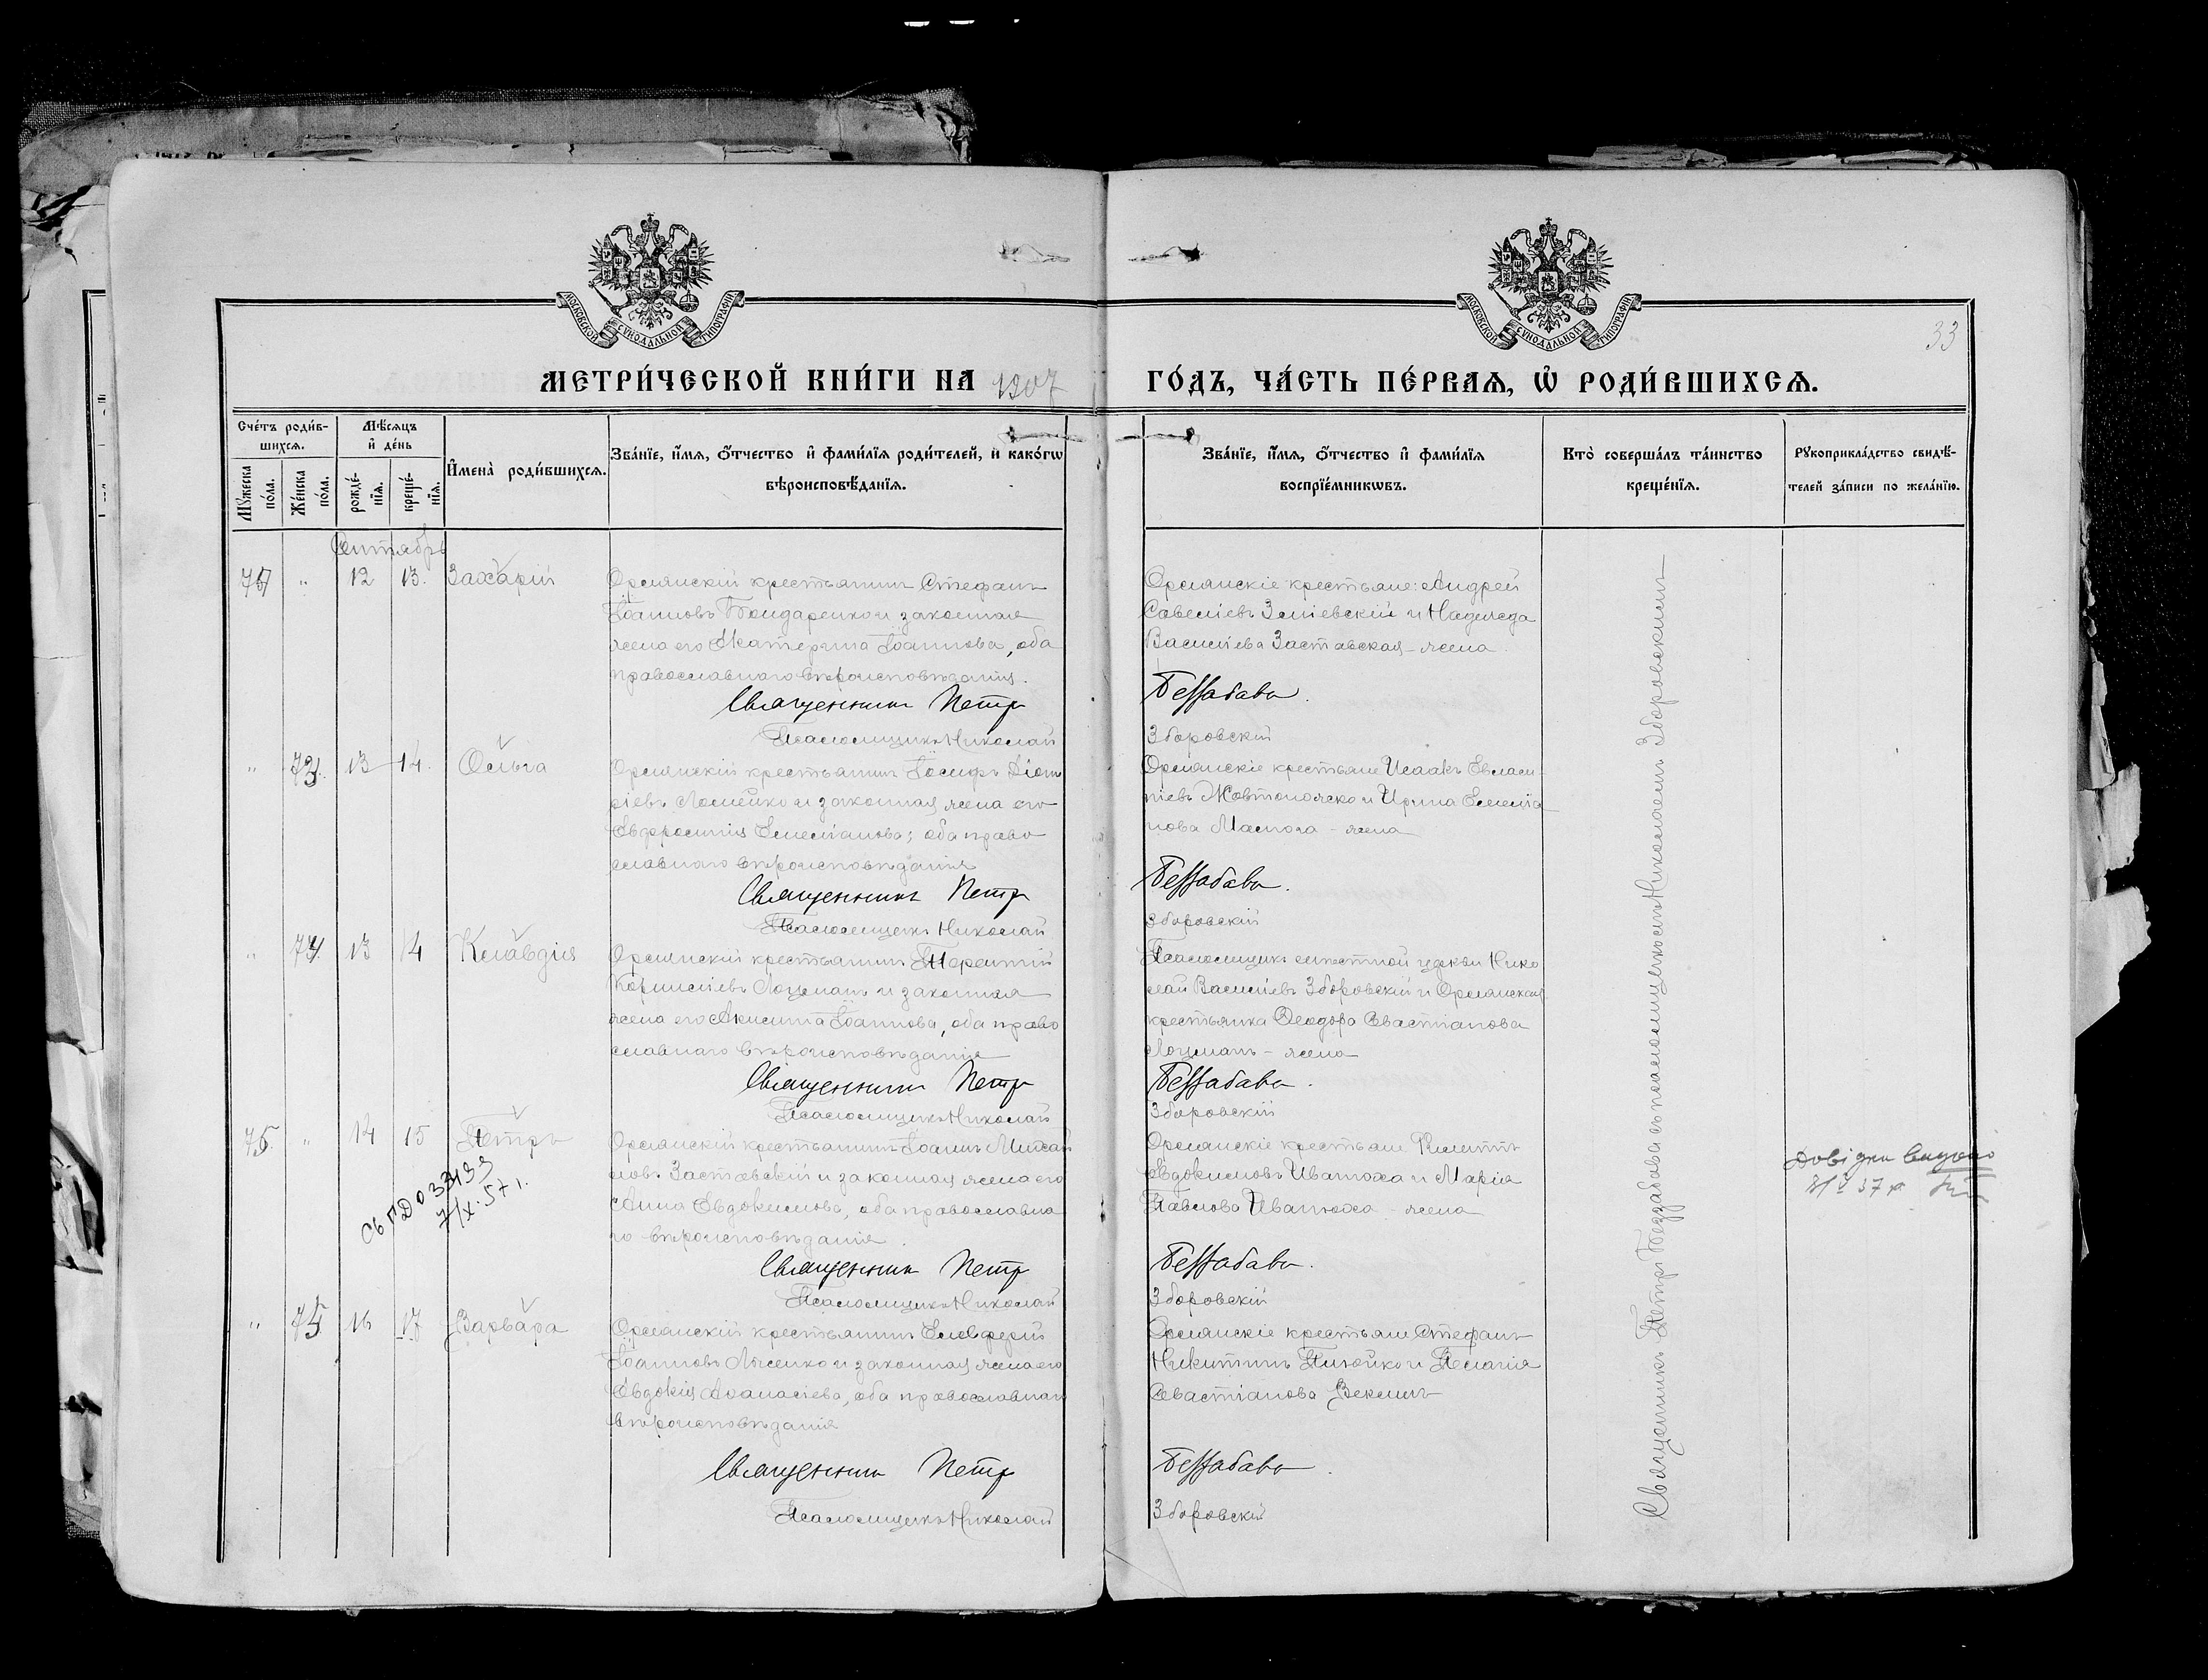 МОСКОВСКОЙ СУНОДАЛЬНОЙ ТИПОГРАФІИ
МОСКОВСКОЙ СУНОДАЛЬНОЙ ТИПОГРАФІИ
33
МЕТРИ́ЧЕСКОЙ КНИ́ГИ НА 1907 ГО́ДЪ, ЧА́СТЬ ПЕ́РВАѦ, Ѡ РОДИ́ВШИХСѦ.
Сче́тъ роди́в-
шихсѧ.
Мѣ́сѧцъ
и де́нь
Мꙋ́жеска по́ла.
Же́нска по́ла.
рожде́-
нїѧ.
креще́-
нїѧ.
И҆мена̀ роди́вшихсѧ.
Зва́нїе, и҆́мѧ, о҆́тчество и҆ фами́лїѧ роди́телей, и҆ како́гѡ
вѣроисповѣ́данїѧ.
Зва́нїе, и҆́мѧ, о҆́тчество и҆ фами́лїѧ
воспрїе́мникѡвъ.
Кто̀ соверша́лъ та́инство
креще́нїѧ.
Рꙋкоприкла́дство свидѣ́-
телей за́писи по жела́нїю.
Сентябрь
12 13. Захарій
Орлянскій крестьянинъ Стефанъ
Іоанновъ Бондаренко и законная
жена его Екатерина Іоаннова, оба
православнаго вѣроисповѣданія.
Священникъ Петръ
Псаломщикъ Николай
Орлянскіе крестьяне: Андрей
Савеліевъ Зміевскій и Надежда
Василіева Заставская - жена
Беззабава.
Зборовскій
" 73. 13 14. Ольга
Орлянскій крестьянинъ Іосифъ
ріевъ и законная жена его
Евфросинія Емеліанова; оба право
славнаго вѣроисповѣданія
Священникъ Петръ
Псаломщикъ Николай
Орлянскіе крестьяне Исаакъ Евлам-
піевъ Жовтоножко и Ирина Емелiа-
нова - жена
Беззабава.
Зборовскій
" 74. 13 14 Клавдія
Орлянскій крестьянинъ Терентій
Корниліевъ Лоцманъ и законная
жена его Акилина Іоаннова, оба право
славнаго вѣроисповѣданія
Священникъ Петръ
Псаломщикъ Николай
Псаломщикъ мѣстной церкви Нико
лай Василіевъ Зборовскій и Орлянская
крестьянка Ѳеодора Севастіанова
Лоцманъ - жена
Беззабава.
Зборовскій
" 14 15 Петръ
Орлянскій крестьянинъ Іоаннъ Михаи
ловъ Заставскій и законная жена его
Анна Евдокимова, оба православна
го вѣроисповѣданія.
Священникъ Петръ
Псаломщикъ Николай
Орлянскіе крестьяне Филиппъ
Евдокимовъ Иванюха и Марія
Павлова Иванюха - жена
Беззабава.
Зборовскій
Довідки
" 75 16 17 Варвара
Орлянскій крестьянинъ Елевферій
Іоанновъ Лысенко и законная жена его
Евдокія Аѳанасіева, оба православнаго
вѣроисповѣданія
Священникъ Петръ
Псаломщикъ Николай
Орлянскіе крестьяне Стефанъ
Никитинъ и Пелагія
Севастіанова
Беззабава.
Зборовскій
Священникъ Петръ Беззабава съ псаломщикомъ Николаемъ Зборовскимъ